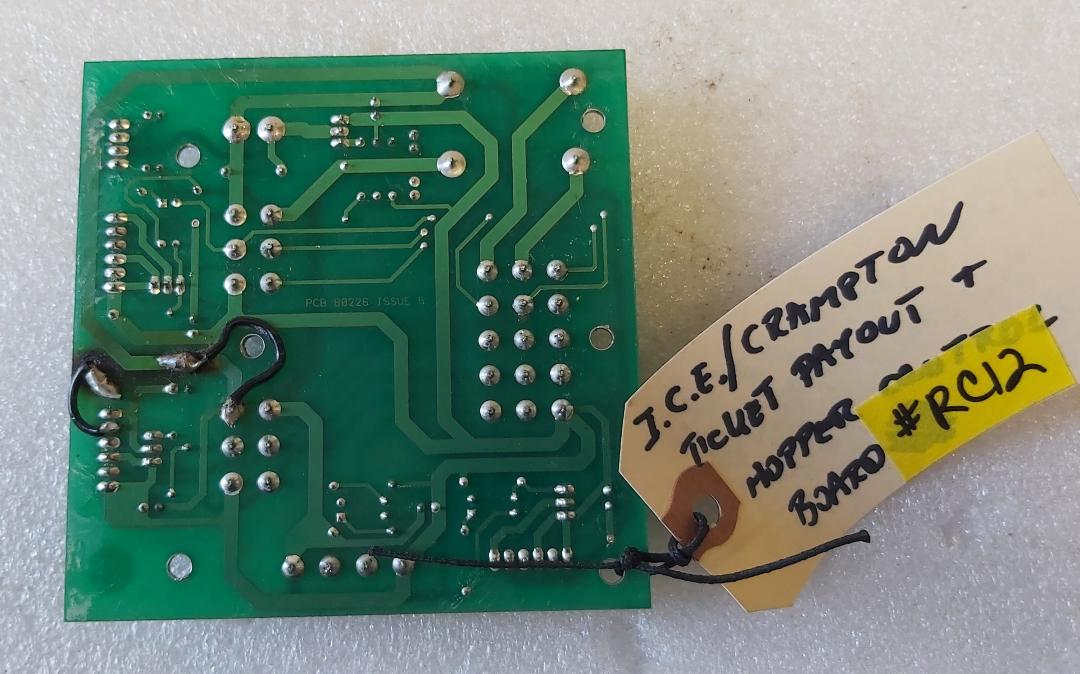 PCB 80226 ISSUE 5
I.C.E./CRAMPTON
TICKET PAYOUT +
HOPPER CONTROL
BOARD #RC12